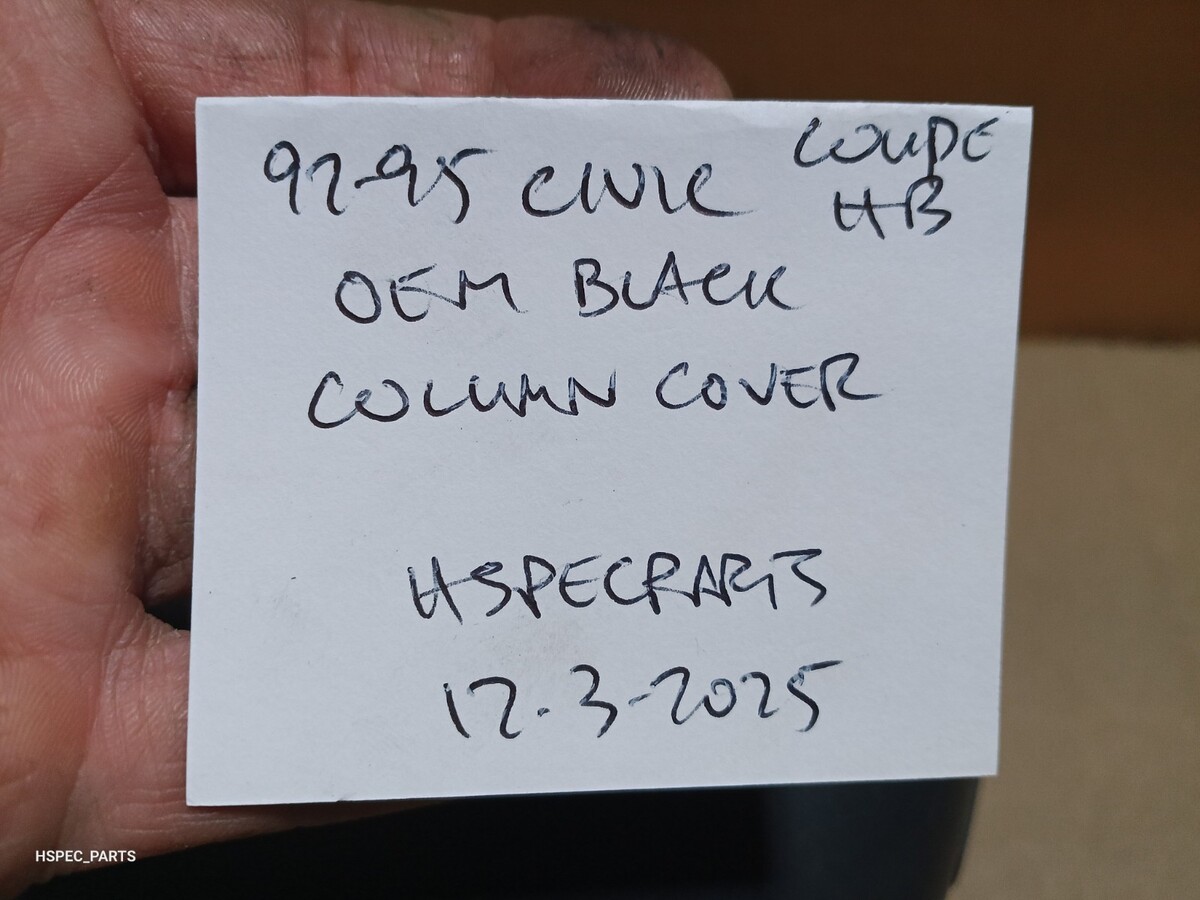 92-95 CIVIC COUPE
HB
OEM BLACK
COLUMN COVER
HSPECPARTS
12-3-2025
HSPEC_PARTS